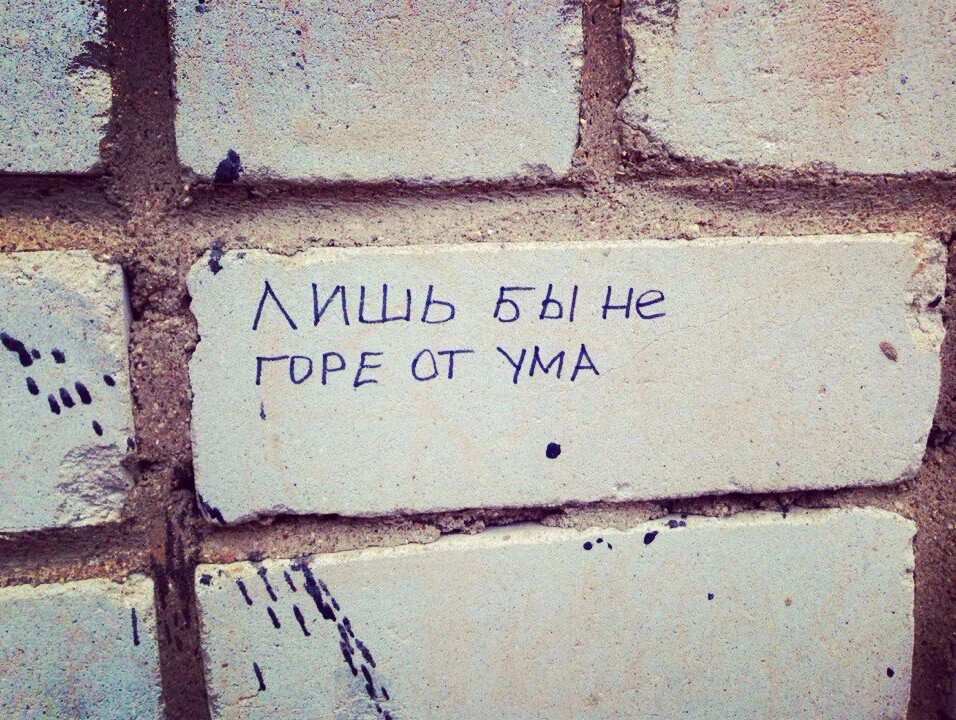 ЛИШЬ БЫ Не
ГОРЕ ОТ УМА